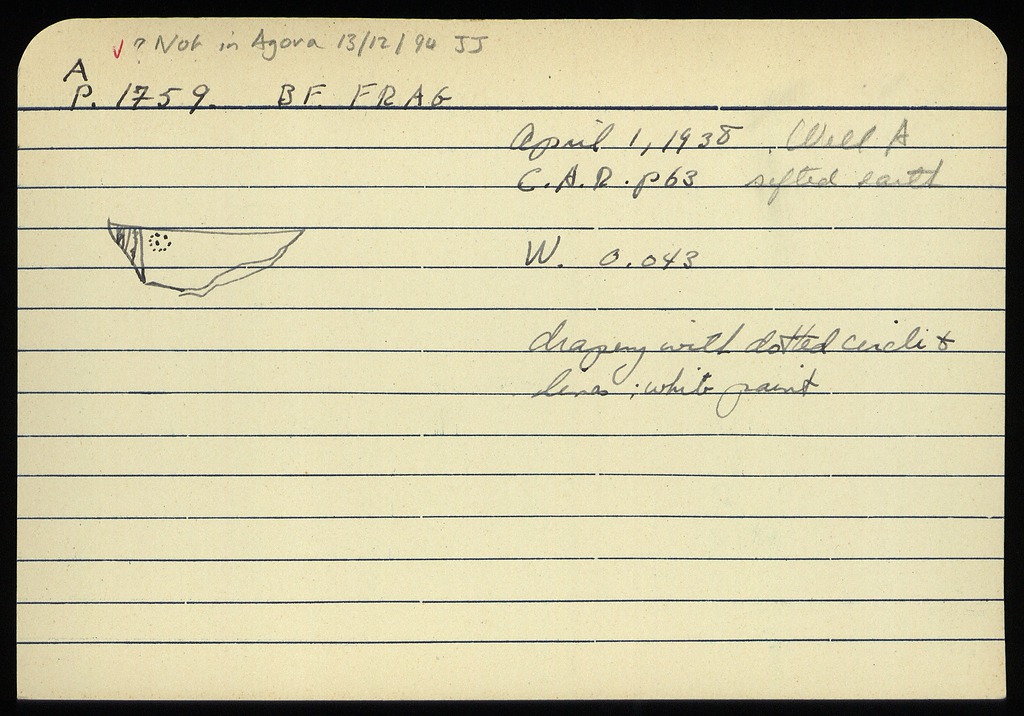 ? Not in Agora 13/12/94 JJ
A
P. 1759. BF. FRAG
April 1, 1938. Well A
C.A.R. p63 sifted earth
W. 0.043
drapery with dotted circle &
lines; white paint